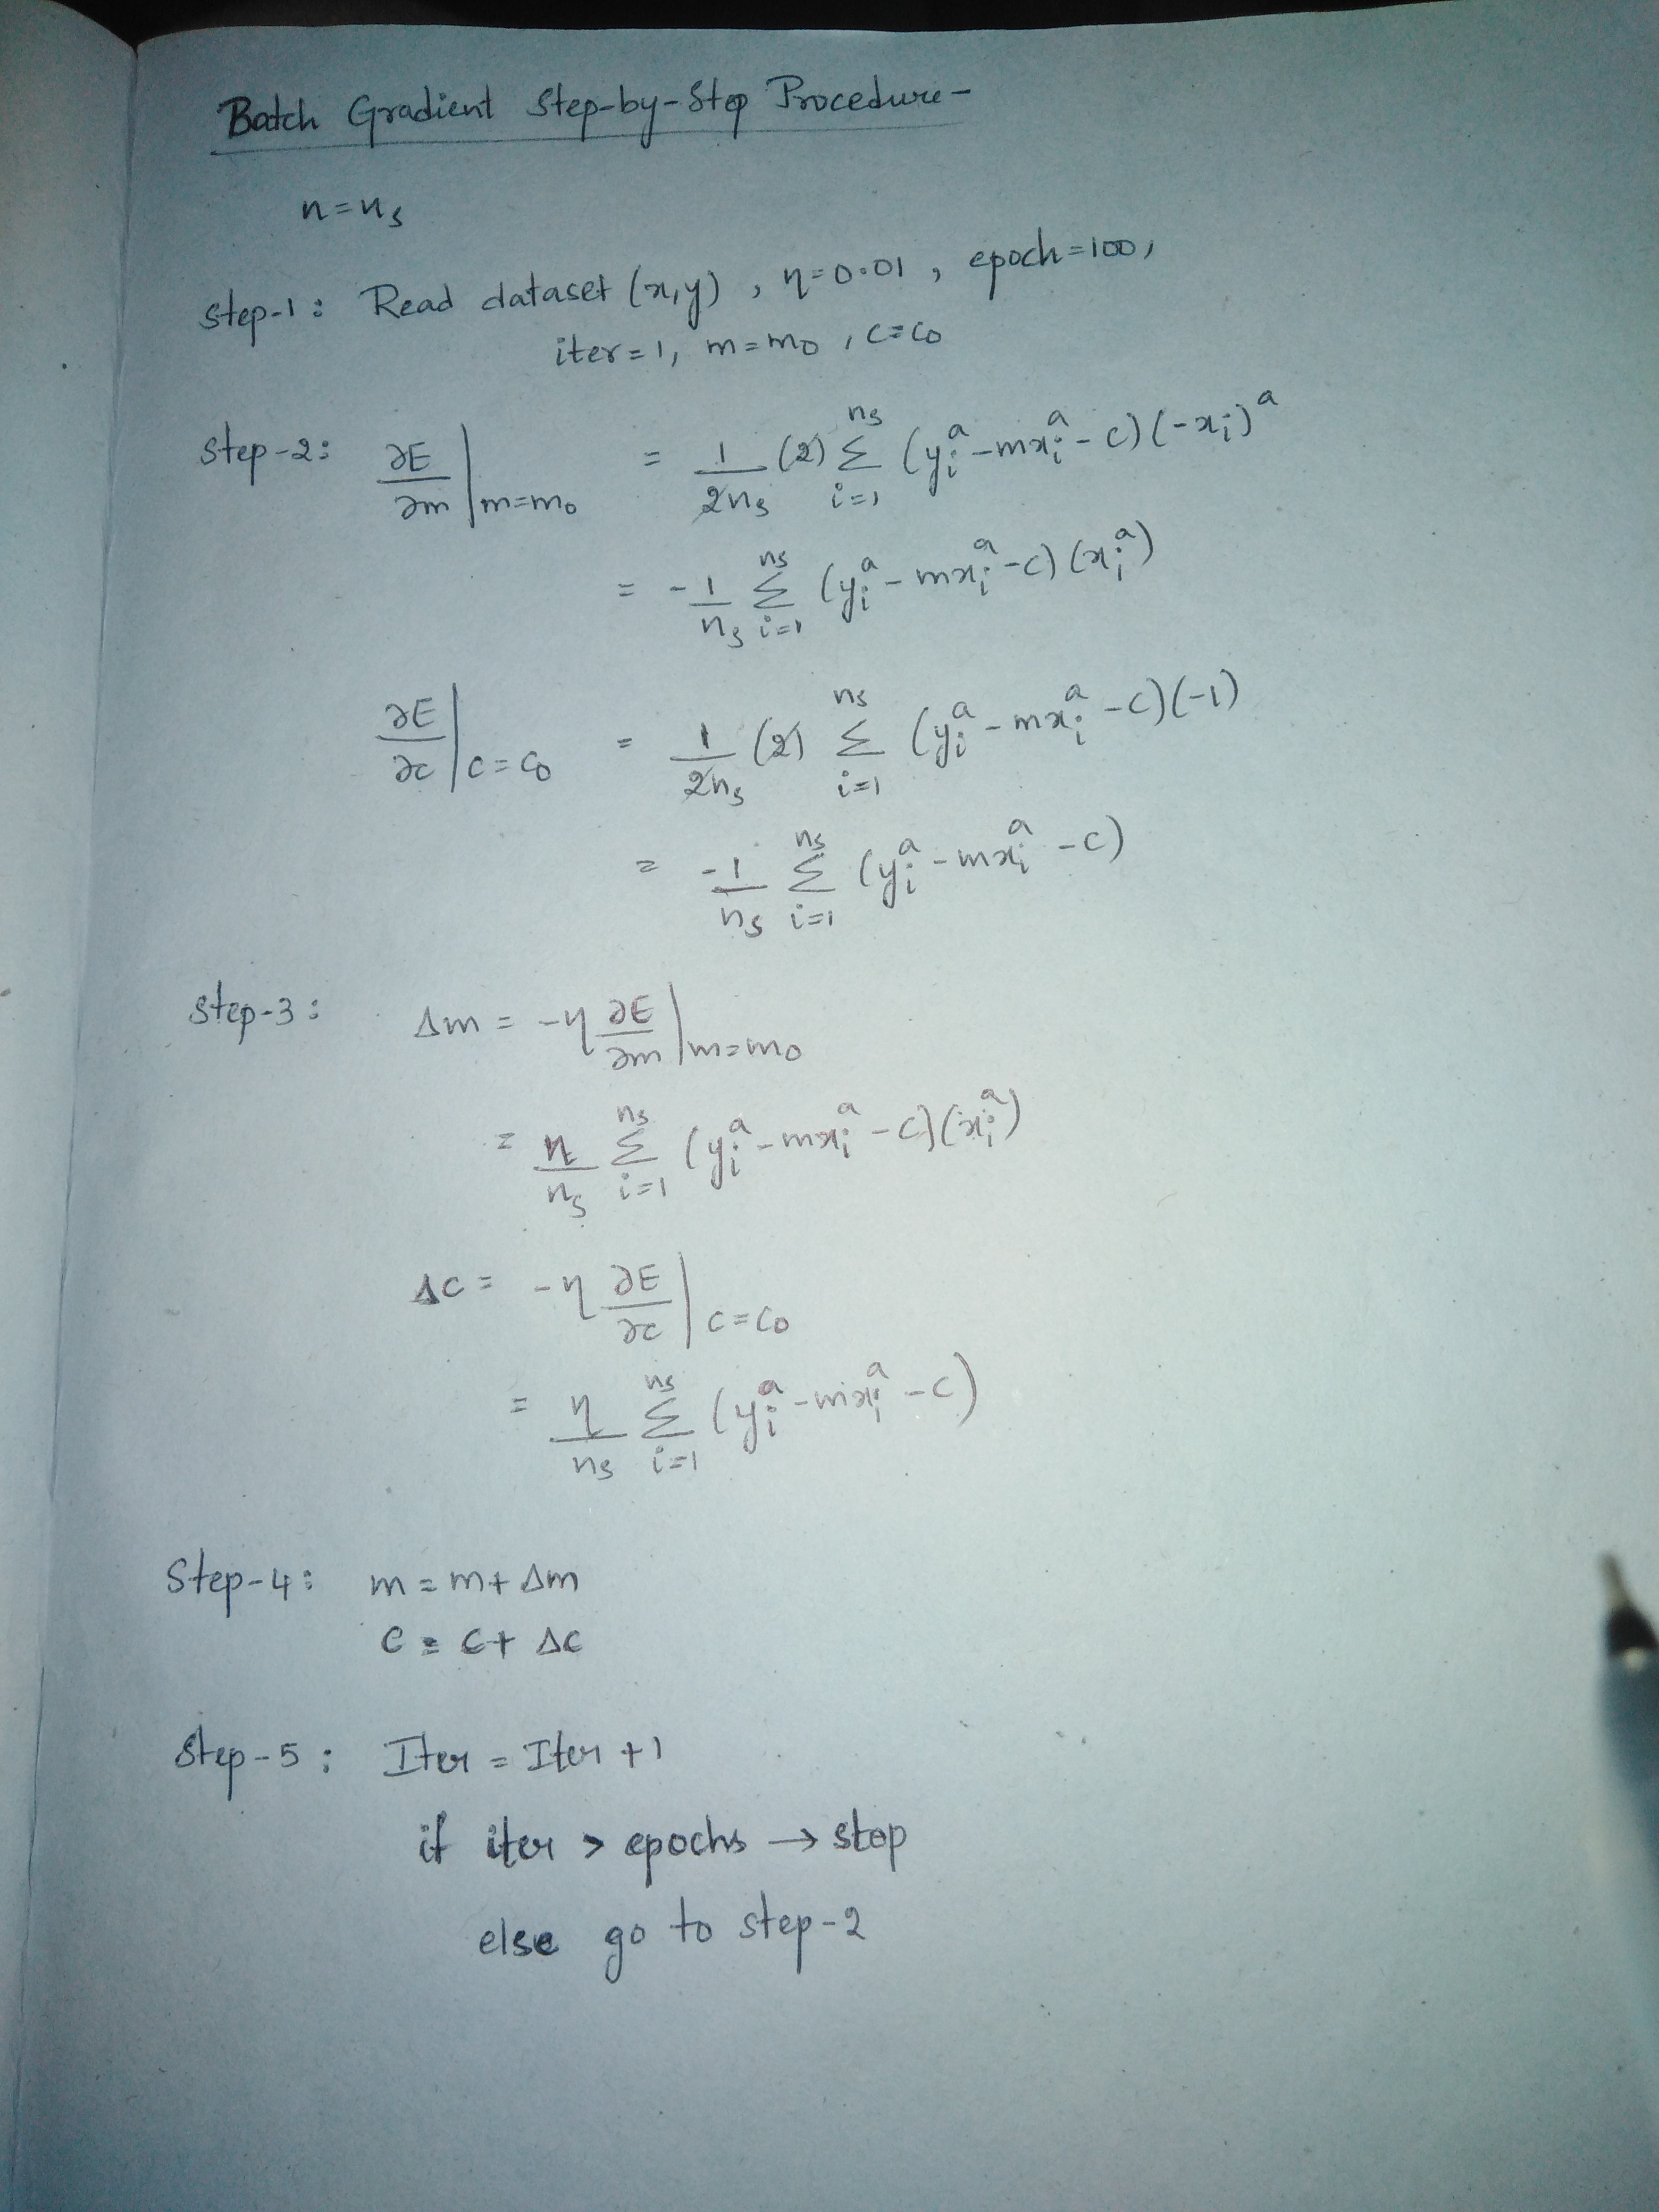 Batch Gradient Step-by-Step Procedure-
n=ns
Step-1: Read dataset (x,y), η=0.01, epoch=100,
iter=1, m=m0, c=c0
Step-2: ∂E/∂m |m=m0 = 1/2ns (2) Σ i=1 ns (yi^a - mxi^a - c)(-xi)^a
= -1/ns Σ i=1 ns (yi^a - mxi^a - c)(xi^a)
∂E/∂c |c=c0 = 1/2ns (2) Σ i=1 ns (yi^a - mxi^a - c)(-1)
= -1/ns Σ i=1 ns (yi^a - mxi^a - c)
Step-3: Δm = -η ∂E/∂m |m=m0
= η/ns Σ i=1 ns (yi^a - mxi^a - c)(xi^a)
Δc = -η ∂E/∂c |c=c0
= η/ns Σ i=1 ns (yi^a - mxi^a - c)
Step-4: m = m + Δm
c = c + Δc
Step-5: Iter = Iter + 1
if iter > epochs → stop
else go to step-2